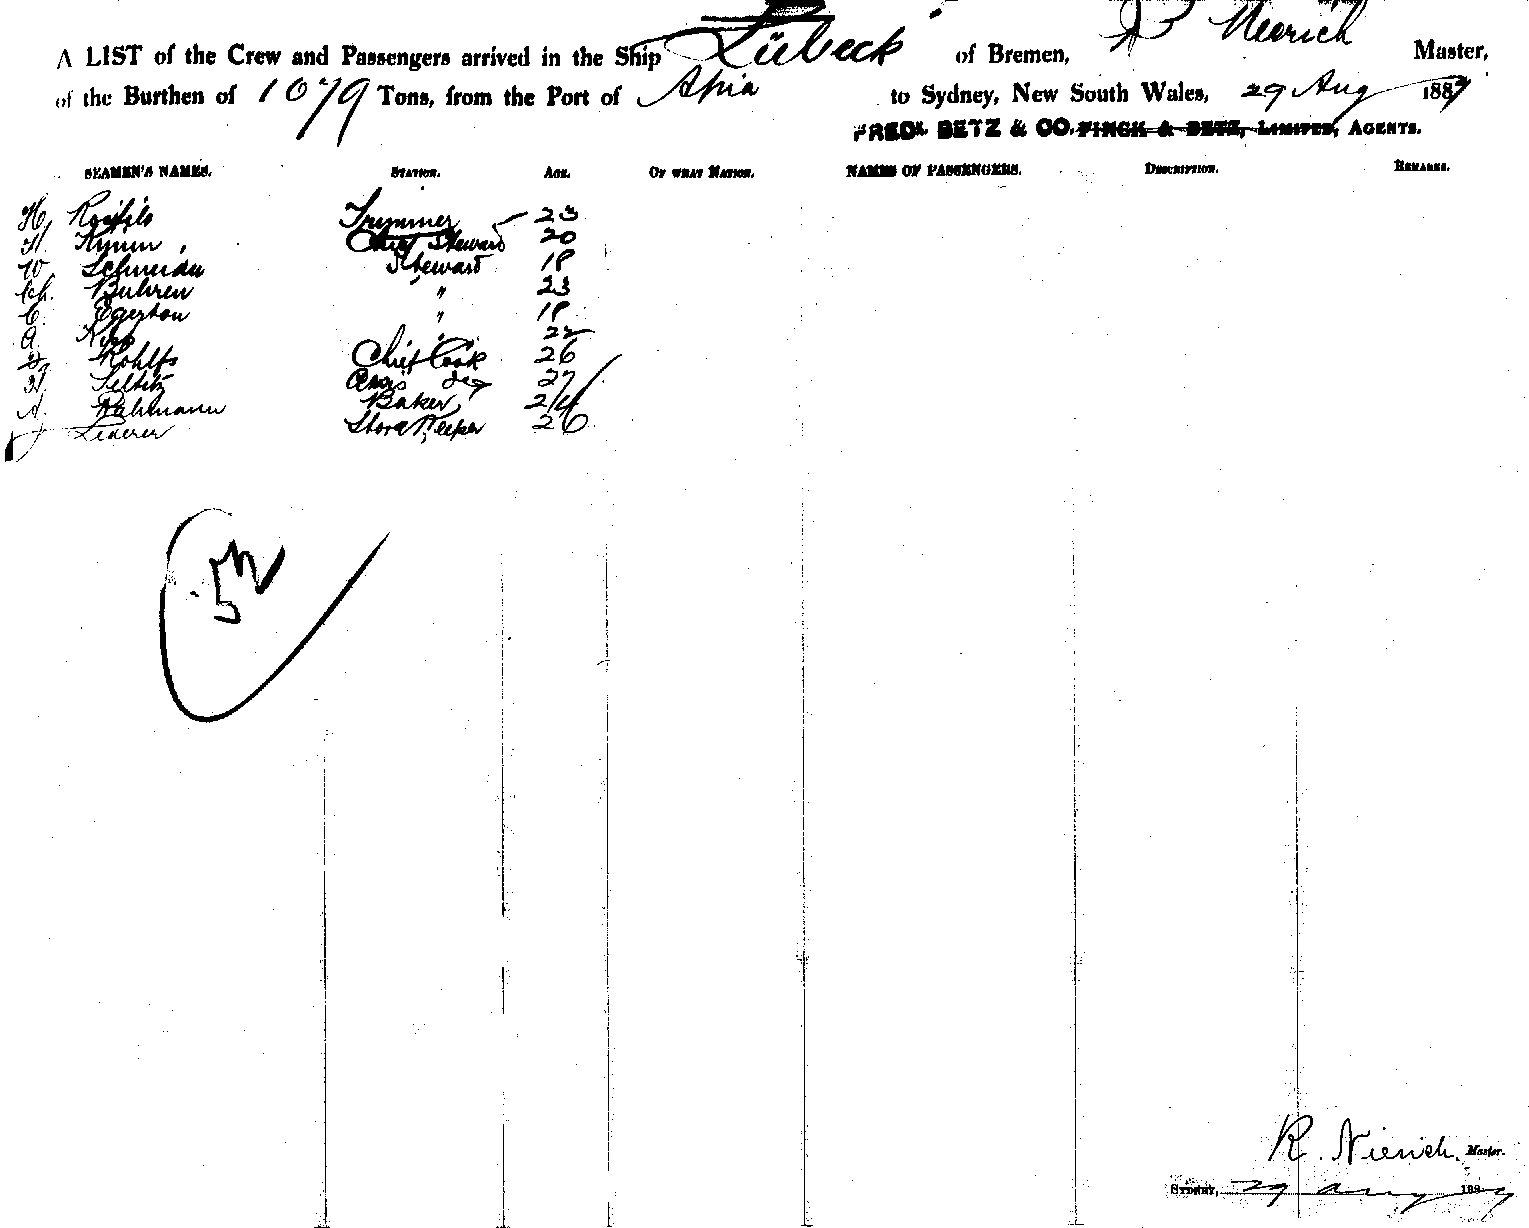 A LIST of the Crew and Passengers arrived in the Ship Lübeck of Bremen, R Nierich Master,
of the Burthen of 1079 Tons, from the Port of Apia to Sydney, New South Wales, 29 Aug 1887
FREDK BETZ & CO. FINCK & BETZ, LIMITED, AGENTS.
SEAMEN'S NAMES. STATION. AGE. OF WHAT NATION. NAMES OF PASSENGERS. DESCRIPTION. REMARKS.
H. Trimmer 23
H. Chief Steward 20
W. Steward 18
Ch. Buhren " 23
C. Egerton " 18
A. " 22
Rohlfs Chief Cook 26
H. 27
A. Baker 24
J Store Keeper 26
52
R. Nierich. Master.
SYDNEY, 29 Aug 1887